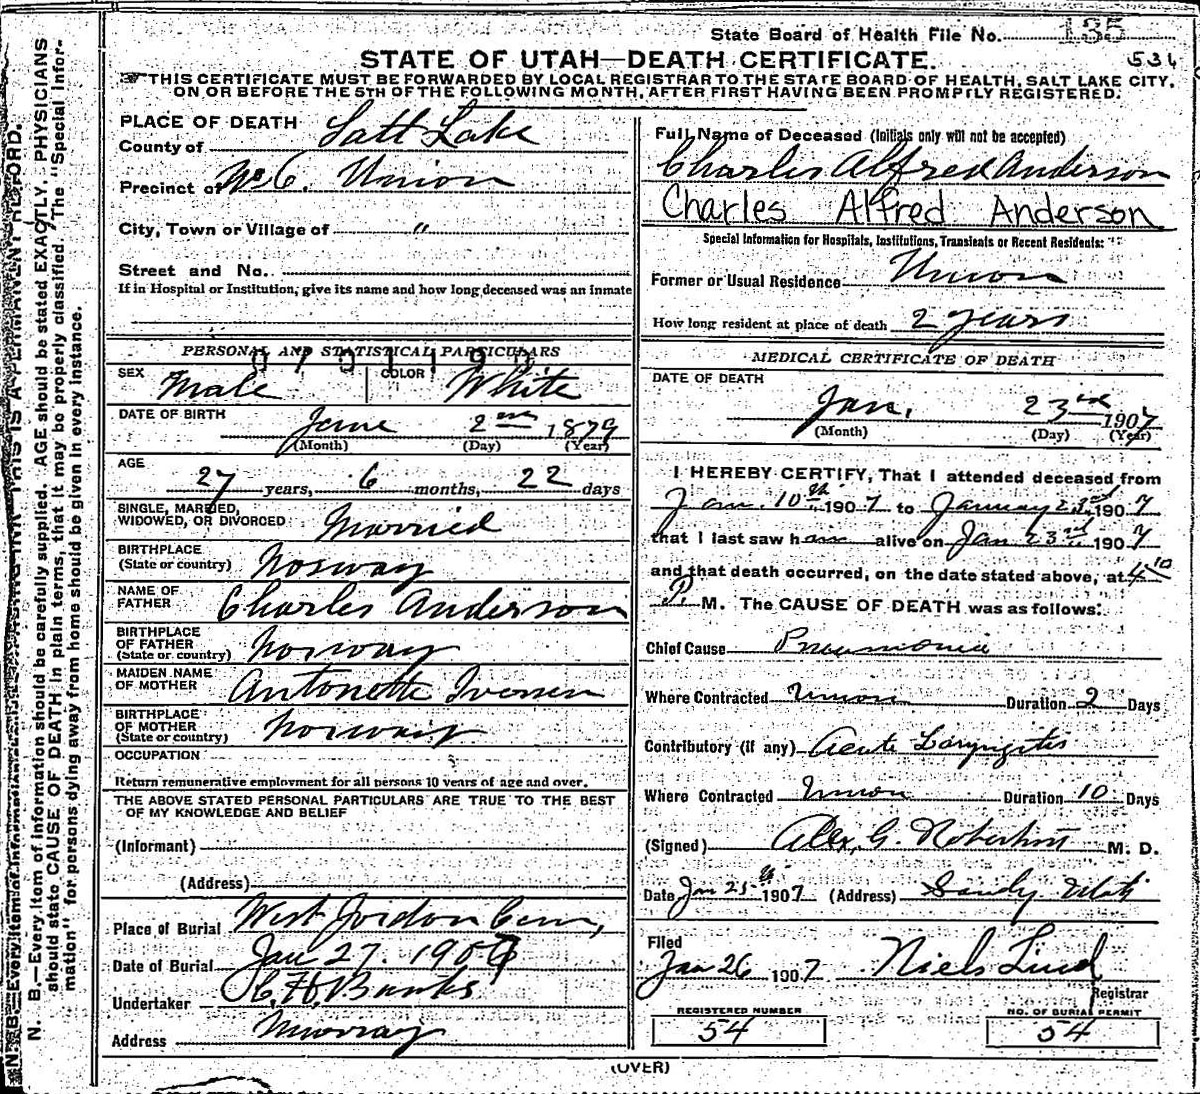 State Board of Health File No. 135
STATE OF UTAH—DEATH CERTIFICATE.
534
THIS CERTIFICATE MUST BE FORWARDED BY LOCAL REGISTRAR TO THE STATE BOARD OF HEALTH, SALT LAKE CITY,
ON OR BEFORE THE 5TH OF THE FOLLOWING MONTH, AFTER FIRST HAVING BEEN PROMPTLY REGISTERED.
N. B.—Every item of information should be carefully supplied. AGE should be stated EXACTLY. PHYSICIANS
should state CAUSE OF DEATH in plain terms, that it may be properly classified. The "Special Infor-
mation" for persons dying away from home should be given in every instance.
THIS IS A PERMANENT RECORD.
PLACE OF DEATH
County of Salt Lake
Precinct of No 6. Union
City, Town or Village of "
Street and No.
If in Hospital or Institution, give its name and how long deceased was an inmate
PERSONAL AND STATISTICAL PARTICULARS
SEX Male COLOR White
DATE OF BIRTH June 2nd 1879
(Month) (Day) (Year)
AGE 27 years, 6 months, 22 days
SINGLE, MARRIED,
WIDOWED, OR DIVORCED Married
BIRTHPLACE
(State or country) Norway
NAME OF
FATHER Charles Anderson
BIRTHPLACE
OF FATHER
(State or country) Norway
MAIDEN NAME
OF MOTHER Antonette Iversen
BIRTHPLACE
OF MOTHER
(State or country) Norway
OCCUPATION
Return remunerative employment for all persons 10 years of age and over.
THE ABOVE STATED PERSONAL PARTICULARS ARE TRUE TO THE BEST
OF MY KNOWLEDGE AND BELIEF
(Informant)
(Address)
Place of Burial West Jordon Cem,
Date of Burial Jan 27. 1907
Undertaker Banks
Address Murray
Full Name of Deceased (Initials only will not be accepted)
Charles Alfred Anderson
Charles Alfred Anderson
Special Information for Hospitals, Institutions, Transients or Recent Residents:
Former or Usual Residence Union
How long resident at place of death 2 years
MEDICAL CERTIFICATE OF DEATH
DATE OF DEATH
Jan. 23rd 1907
(Month) (Day) (Year)
I HEREBY CERTIFY, That I attended deceased from
Jan. 10th 1907 to January 23rd 1907
that I last saw him alive on Jan 23rd 1907
and that death occurred, on the date stated above, at 4 10
P. M. The CAUSE OF DEATH was as follows:
Chief Cause Pneumonia
Where Contracted Union Duration 2 Days
Contributory (if any) Acute Laryngitis
Where Contracted Union Duration 10 Days
(Signed) Alex. G. Robertson M. D.
Date Jan 25th 1907 (Address) Sandy Utah
Filed
Jan 26 1907 Niels Lind
Registrar
REGISTERED NUMBER
54
NO. OF BURIAL PERMIT
54
(OVER)